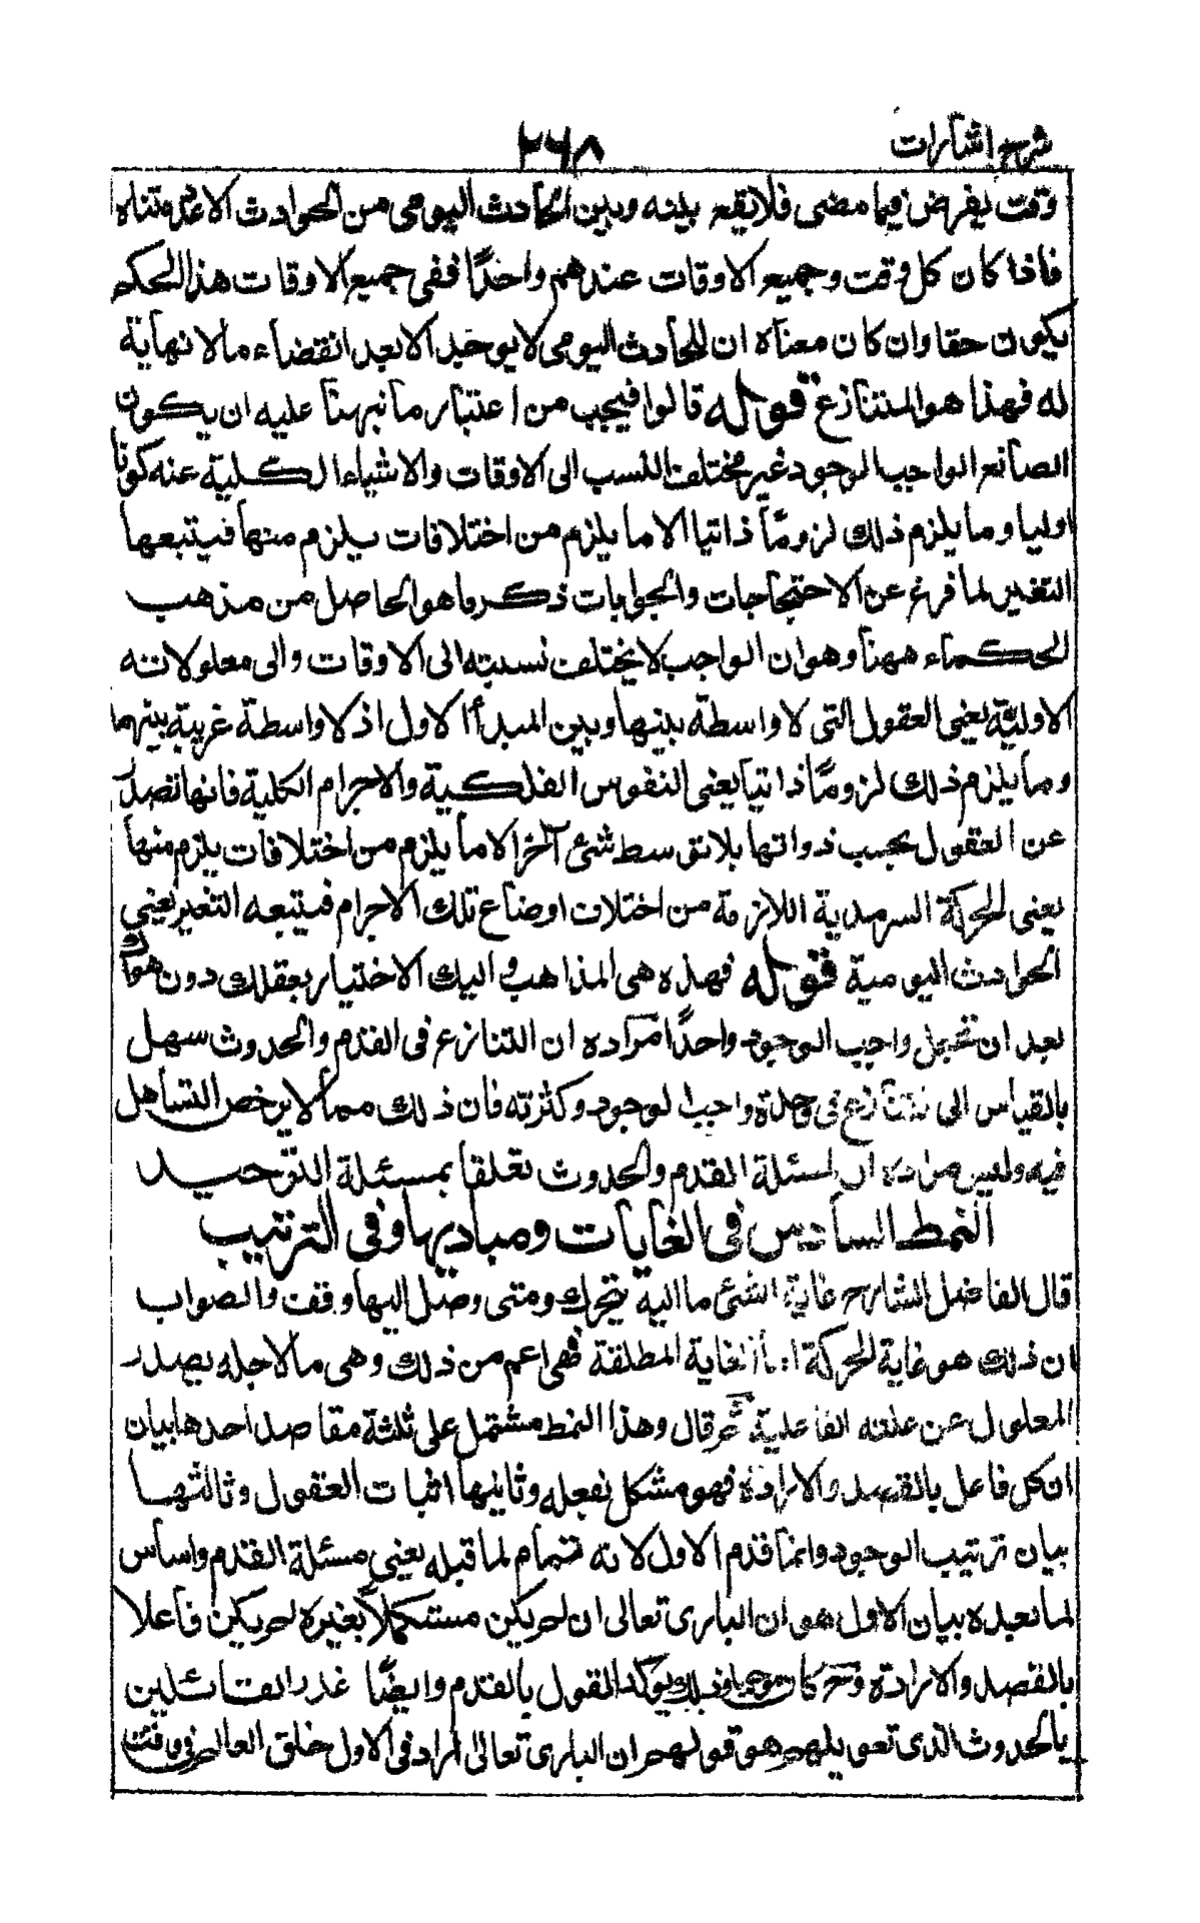 شرح اشارات ۲۶۸
وقت يفرض فيما مضى فلا يقع بينه وبين الحادث اليومى من الحوادث الا عدد متناه
فاذا كان كل وقت وجميع الاوقات عندهم واحدًا ففى جميع الاوقات هذا الحكم
يكون حقا وان كان معناه ان الحادث اليومى لا يوجد الا بعد انقضاء ما لا نهاية
له فهذا هو المتنازع قوله قالوا فيجب من اعتبار ما نبهنا عليه ان يكون
الصانع الواجب الوجود غير مختلف النسب الى الاوقات والاشياء الكلية عنه كونا
اوليا وما يلزم ذلك لزومًا ذاتيا الا ما يلزم من اختلافات يلزم منها فيتبعها
التغير لما فرغ عن الاحتجاجات والجوابات ذكر ما هو الحاصل من مذهب
الحكماء ههنا وهو ان الواجب لا يختلف نسبته الى الاوقات والى معلولاته
الاولية يعنى العقول التى لا واسطة بينها وبين المبدأ الاول اذ لا واسطة غريبة بينهما
وما يلزم ذلك لزومًا ذاتيا يعنى النفوس الفلكية والاجرام الكلية فانها تصدر
عن العقول بحسب ذواتها بلا توسط شئ آخر الا ما يلزم من اختلافات يلزم منها
يعنى الحركة السرمدية اللازمة من اختلاف اوضاع تلك الاجرام فيتبعه التغير يعنى
الحوادث اليومية قوله فهذه هى المذاهب واليك الاختيار بعقلك دون هواك
بعد ان تجعل واجب الوجود واحدًا مراده ان التنازع فى القدم والحدوث سهل
بالقياس الى التنازع فى وحدة واجب الوجود وكثرته فان ذلك مما لا يرخص التساهل
فيه وليس مراده ان لمسئلة القدم والحدوث تعلقا بمسئلة التوحيد
النمط السادس فى الغايات ومباديها وفى الترتيب
قال الفاضل الشارح غاية الشئ ما اليه يتحرك ومتى وصل اليها وقف والصواب
ان ذلك هو غاية الحركة اما الغاية المطلقة فهى اعم من ذلك وهى ما لاجله يصدر
المعلول عن علته الفاعلية ثم قال وهذا النمط مشتمل على ثلثة مقاصد احدها بيان
ان كل فاعل بالقصد والارادة فهو مستكمل بفعله وثانيها اثبات العقول وثالثها
بيان ترتيب الوجود وانما قدم الاول لانه تمام لما قبله يعنى مسئلة القدم واساس
لما بعده بيان الاول هو ان البارى تعالى ان لم يكن مستكملًا بغيره لم يكن فاعلا
بالقصد والارادة وحينئذ كان موجبا وذلك يؤكد القول بالقدم وايضًا عذر القائلين
بالحدوث الذى تعويلهم هو قولهم ان البارى تعالى اراد فى الاول خلق العالم فى وقت